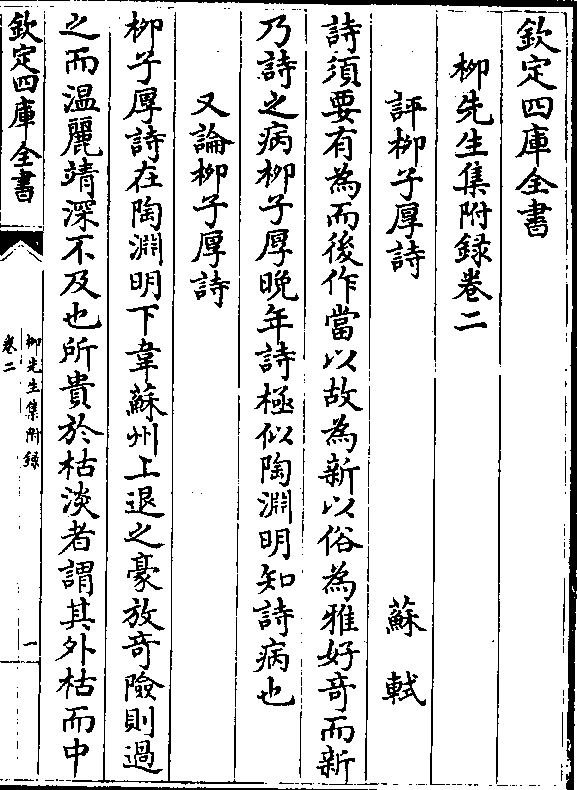 欽定四庫全書
柳先生集附録卷二
評柳子厚詩 蘇軾
詩須要有為而後作當以故為新以俗為雅好竒而新
乃詩之病柳子厚晚年詩極似陶淵明知詩病也
又論柳子厚詩
柳子厚詩在陶淵明下韋蘇州上退之豪放竒險則過
之而温麗靖深不及也所貴於枯淡者謂其外枯而中
欽定四庫全書
柳先生集附録
卷二
一